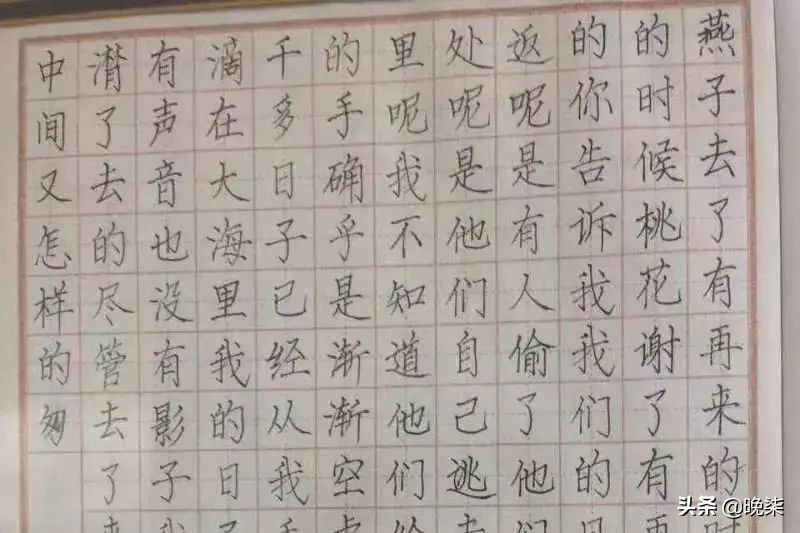 燕子去了有再来的时
的时候桃花谢了有再
的你告诉我我们的日
返呢是有人偷了他们
处呢是他们自己逃走
里呢我不知道他们给
的手确乎是渐渐空虚
千多日子已经从我手
滴在大海里我的日子
有声音也没有影子我
潸了去的尽管去了来
中间又怎样的匆
头条 @晚柒